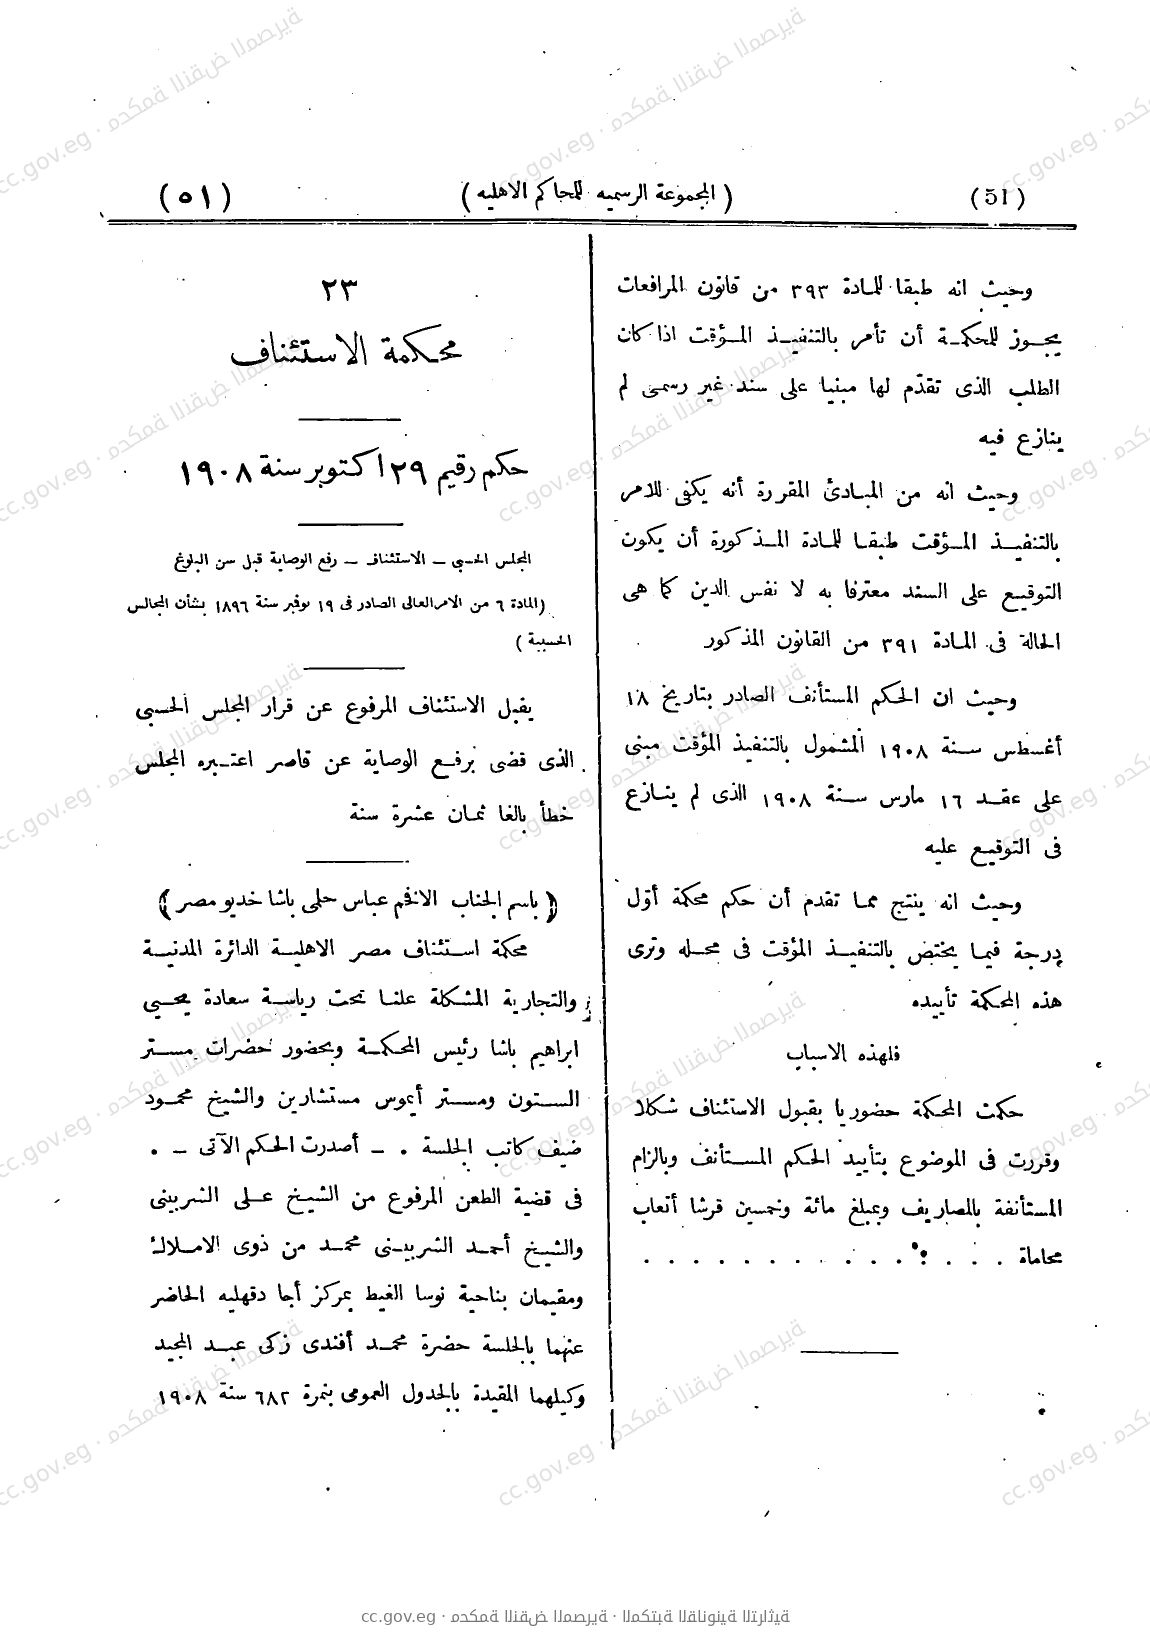 (51)
( المجموعة الرسميه للمحاكم الاهليه )
(٥١)
وحيث انه طبقا للمادة ٣٩٣ من قانون المرافعات
يجوز للمحكمة أن تأمر بالتنفيذ المؤقت اذا كان
الطلب الذى تقدّم لها مبنيا على سند غير رسمى لم
ينازع فيه
وحيث انه من المبادئ المقررة أنه يكفى للامر
بالتنفيذ المؤقت طبقا للمادة المذكورة أن يكون
التوقيع على السند معترفا به لا نفس الدين كما هى
الحالة فى المادة ٣٩١ من القانون المذكور
وحيث ان الحكم المستأنف الصادر بتاريخ ١٨
أغسطس سنة ١٩٠٨ المشمول بالتنفيذ المؤقت مبنى
على عقد ١٦ مارس سنة ١٩٠٨ الذى لم ينازع
فى التوقيع عليه
وحيث انه ينتج مما تقدم أن حكم محكمة أوّل
درجة فيما يختص بالتنفيذ المؤقت فى محله وترى
هذه المحكمة تأييده
فلهذه الاسباب
حكمت المحكمة حضوريا بقبول الاستئناف شكلا
وقررت فى الموضوع بتأييد الحكم المستأنف وبالزام
المستأنفة بالمصاريف وبمبلغ مائة وخمسين قرشا أتعاب
محاماة . . . . . . . . . . . . . .
٢٣
محكمة الاستئناف
حكم رقيم ٢٩ اكتوبر سنة ١٩٠٨
المجلس الحسبى – الاستئناف – رفع الوصاية قبل سن البلوغ
(المادة ٦ من الامر العالى الصادر فى ١٩ نوفمبر سنة ١٨٩٦ بشأن المجالس
الحسبية )
يقبل الاستئناف المرفوع عن قرار المجلس الحسبى
الذى قضى برفع الوصاية عن قاصر اعتبره المجلس
خطأ بالغا ثمان عشرة سنة
( باسم الجناب الافخم عباس حلمى باشا خديو مصر )
محكمة استئناف مصر الاهلية الدائرة المدنية
والتجارية المشكلة علنا تحت رياسة سعادة يحيى
ابراهيم باشا رئيس المحكمة وبحضور حضرات مستر
الستون ومستر أيموس مستشارين والشيخ محمود
ضيف كاتب الجلسة . – أصدرت الحكم الآتى – .
فى قضية الطعن المرفوع من الشيخ على الشربينى
والشيخ أحمد الشربينى محمد من ذوى الاملاك
ومقيمان بناحية نوسا الغيط بمركز أجا دقهليه الحاضر
عنهما بالجلسة حضرة محمد أفندى زكى عبد المجيد
وكيلهما المقيدة بالجدول العمومى بنمرة ٦٨٢ سنة ١٩٠٨
cc.gov.eg · محكمة النقض المصرية · المكتبة القانونية التراثية